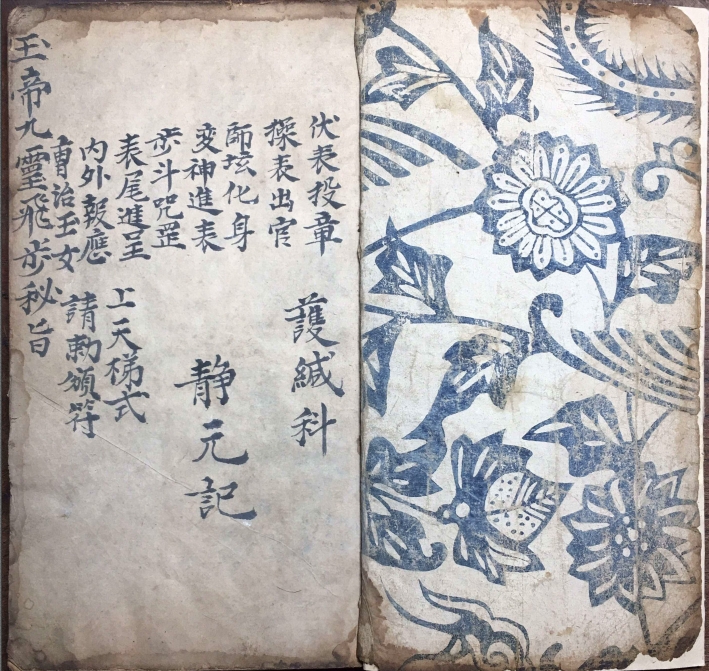 伏表投章
操表出官
師壇化身
变神進表
步斗咒罡
表尾進呈
内外報應
曹治玉女
護緘科
靜元記
上天梯式
請勅頒符
玉帝九靈飛步秘旨